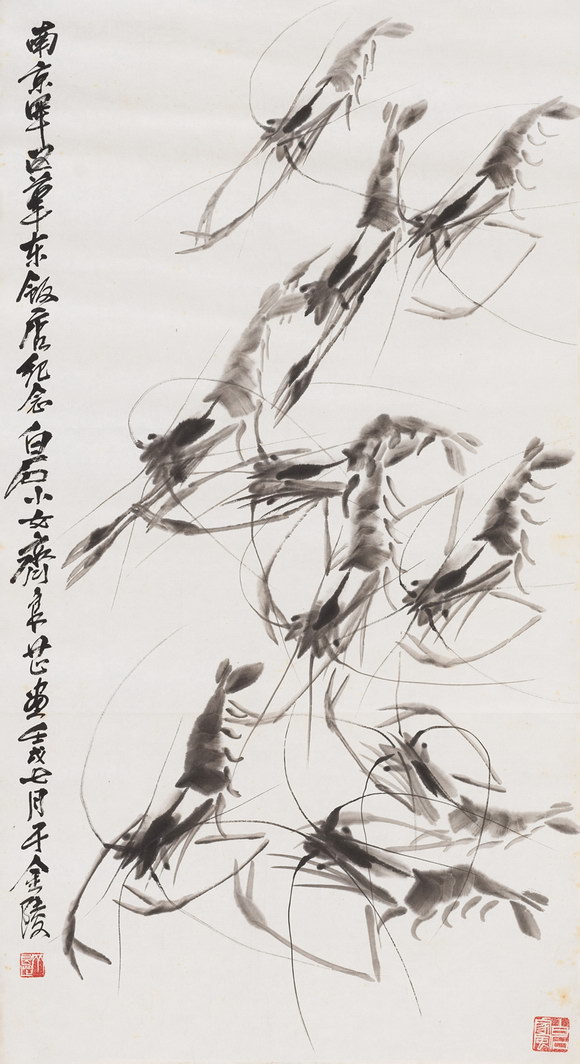 南京军区华东饭店纪念白石小女齐良芷画壬戌七月于金陵